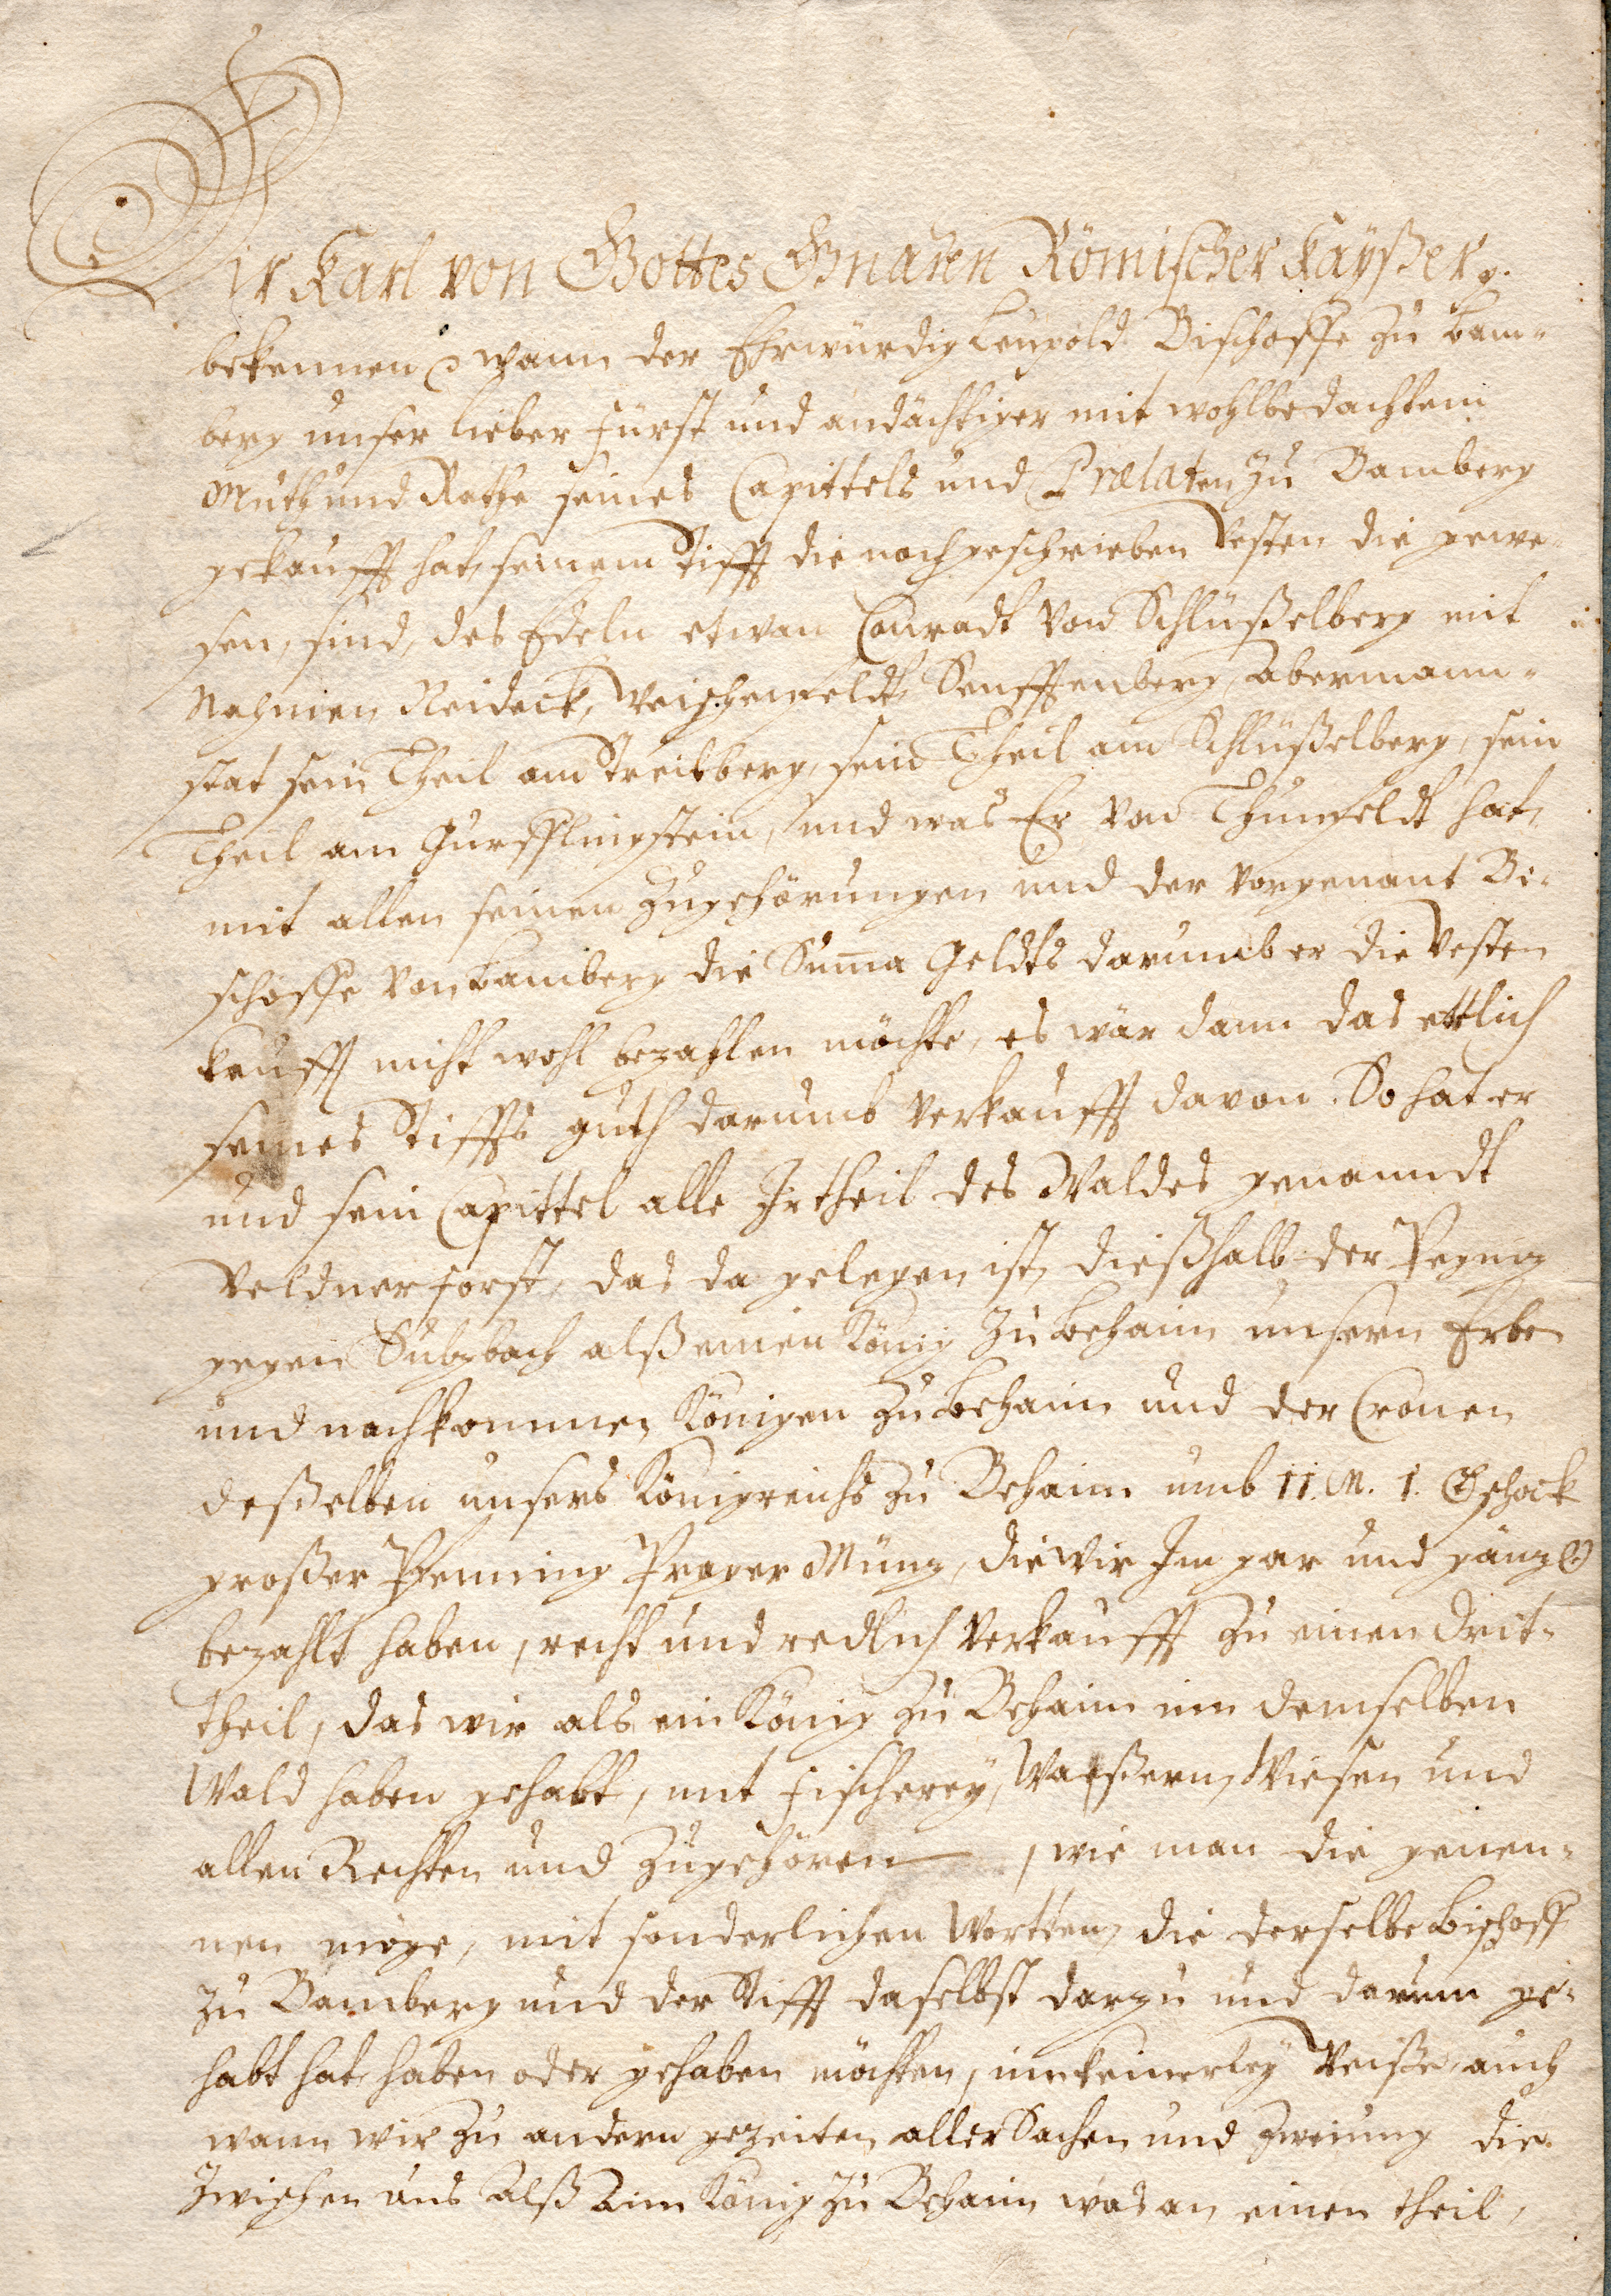 Wir Karl von Gottes Gnaden Römischer Kaÿßer p.
bekennen p wann der Ehrwürdig Leupold Bischoffe zu Bam-
berg unser lieber Fürst und andächtiger mit wohlbedachtem
Muth und Rathe seines Capittels und Prælaten zu Bamberg
gekaufft hat, seinem Stifft die nachgeschrieben Vesten die gewe-
sen, sind, des Edeln etwan Conradt von Schlüßelberg mit
Nahmen Neideck, Weischenfeldt, Senfftenberg, Abermann-
stat sein Theil am Streitberg, sein Theil am Schlüßelberg, sein
Theil am Gurfflingstein, und was Er von Thunfeldt hat,
mit allen seinen Zugehörungen und der vorgenant Bi-
schoffe von Bamberg die Summa Geldts darumb er die Vesten
kaufft nicht wohl bezahlen möchte, es wär dann das ettlich
seines Stiffts guth darumb verkaufft davon. So hat er
und sein Capittel alle Irtheil des Waldes genanndt
Veldner forst, das da gelegen ist, dießhalb der Pegnig
gegen Sulzbach alß einen König zu Behaim unsern Erben
und nachkommen, Königen zu Behaim und der Cronen
deßelben unsers Königreichs zu Behaim umb 11. M. 1. Gschock
großer Pfenning Prager Münz, die wir Im gar und gänzl.
bezahlt haben, recht und redlich verkaufft zu einen drit-
theil, das wir als ein König zu Behaim inn demselben
Wald haben gehabt, mit Fischereÿ, Waßern, Wiesen und
allen Rechten und Zugehören, wie man die genen-
nen möge, mit sonderlichen Wortten, die derselbe Bischoff
zu Bamberg und der Stifft daselbst darzu und darinn ge-
habt hat, haben oder gehaben möchten, inn keinerleÿ Weiße, auch
wann wir zu andern gezeiten aller Sachen und Zweiung die
Zwischen uns alß Aim König zu Behaim was an einen theil,